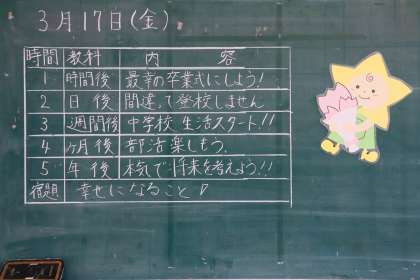 3月17日(金)
時間 教科 内容
1 時間後 最幸の卒業式にしよう!
2 日後 間違って登校しません
3 週間後 中学校生活スタート!!
4 ヶ月後 部活楽しもう。
5 年後 本気で将来を考えよう!!
宿題 幸せになること♪